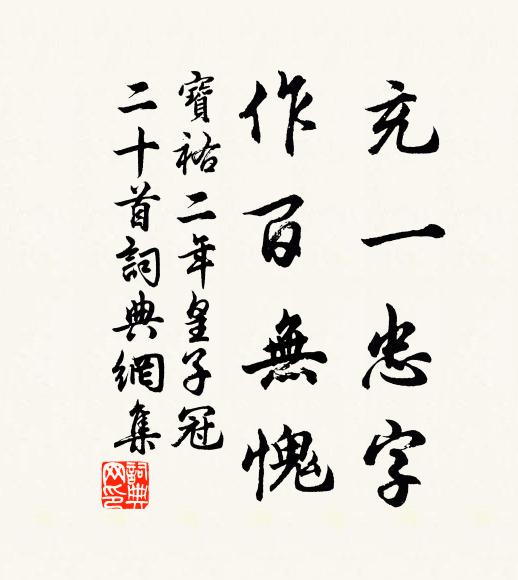 充一忠字
作百無愧
寶祐二年皇子冠
二十首詞典網集
詞典網印